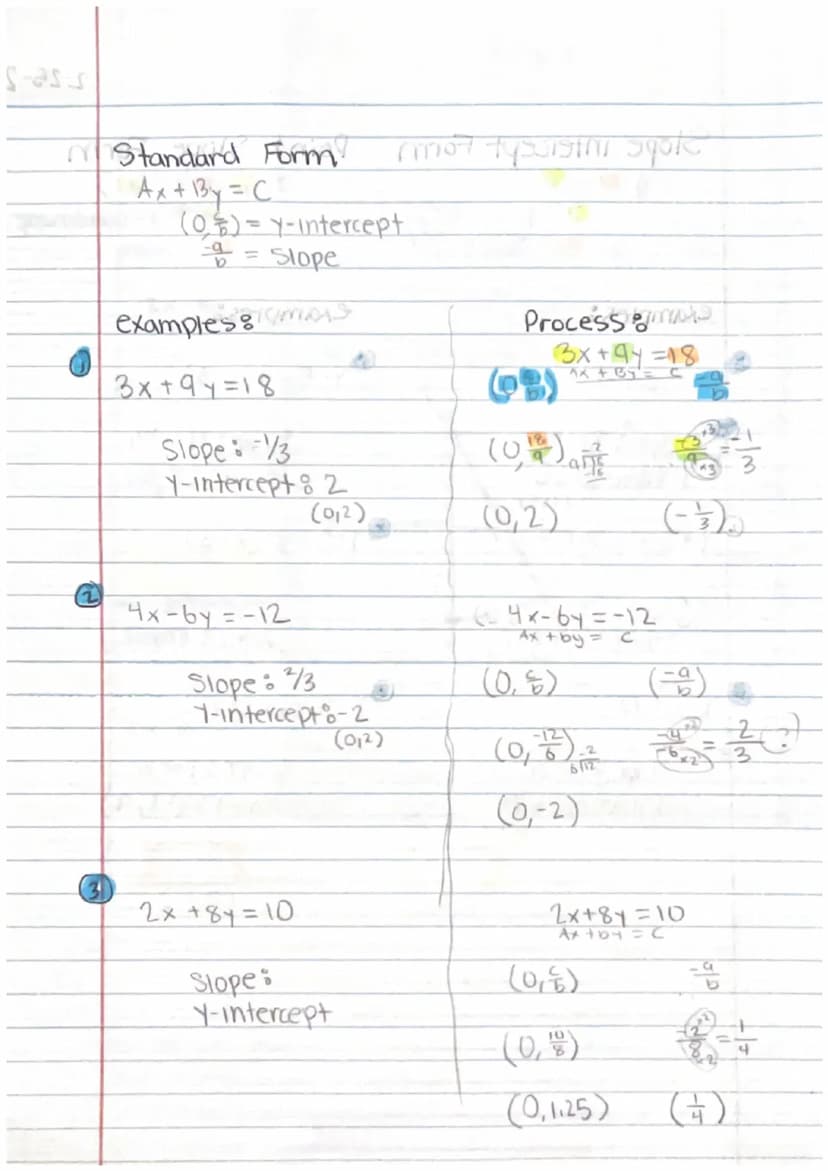 Standard Form
Ax + By = C
(0, c/b) = Y-intercept
-a/b = Slope
examples:
Process:
1
3x + 9y = 18
3x + 9y = 18
Ax + By = C
(0 c/b)
-a/b
Slope: -1/3
Y-intercept: 2
(0,2)
(0, 18/9)
-3/9 = -1/3
(0,2)
(-1/3)
2
4x - 6y = -12
4x - 6y = -12
Ax + by = C
Slope: 2/3
Y-intercept: -2
(0,2)
(0, c/b)
(-a/b)
(0, -12/6)
-4/-6 = 2/3 (?)
(0,-2)
3
2x + 8y = 10
2x + 8y = 10
Ax + by = C
Slope:
Y-intercept
(0, c/b)
-a/b
(0, 10/8)
-2/8 = 1/4
(0,1.25)
(1/4)